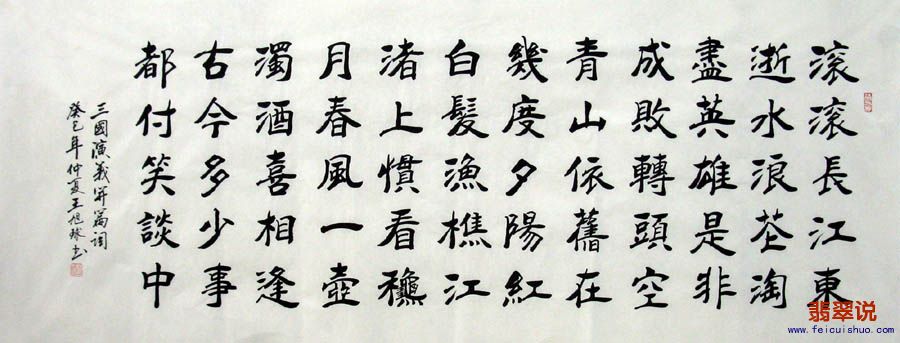 滚滚長江東
逝水浪花淘
盡英雄是非
成敗轉頭空
青山依舊在
幾度夕陽紅
白髮漁樵江
渚上慣看龝
月春風一壺
濁酒喜相逢
古今多少事
都付笑談中
三國演義开篇词
癸巳年仲夏王旭球书
翡翠说
www.feicuishuo.com